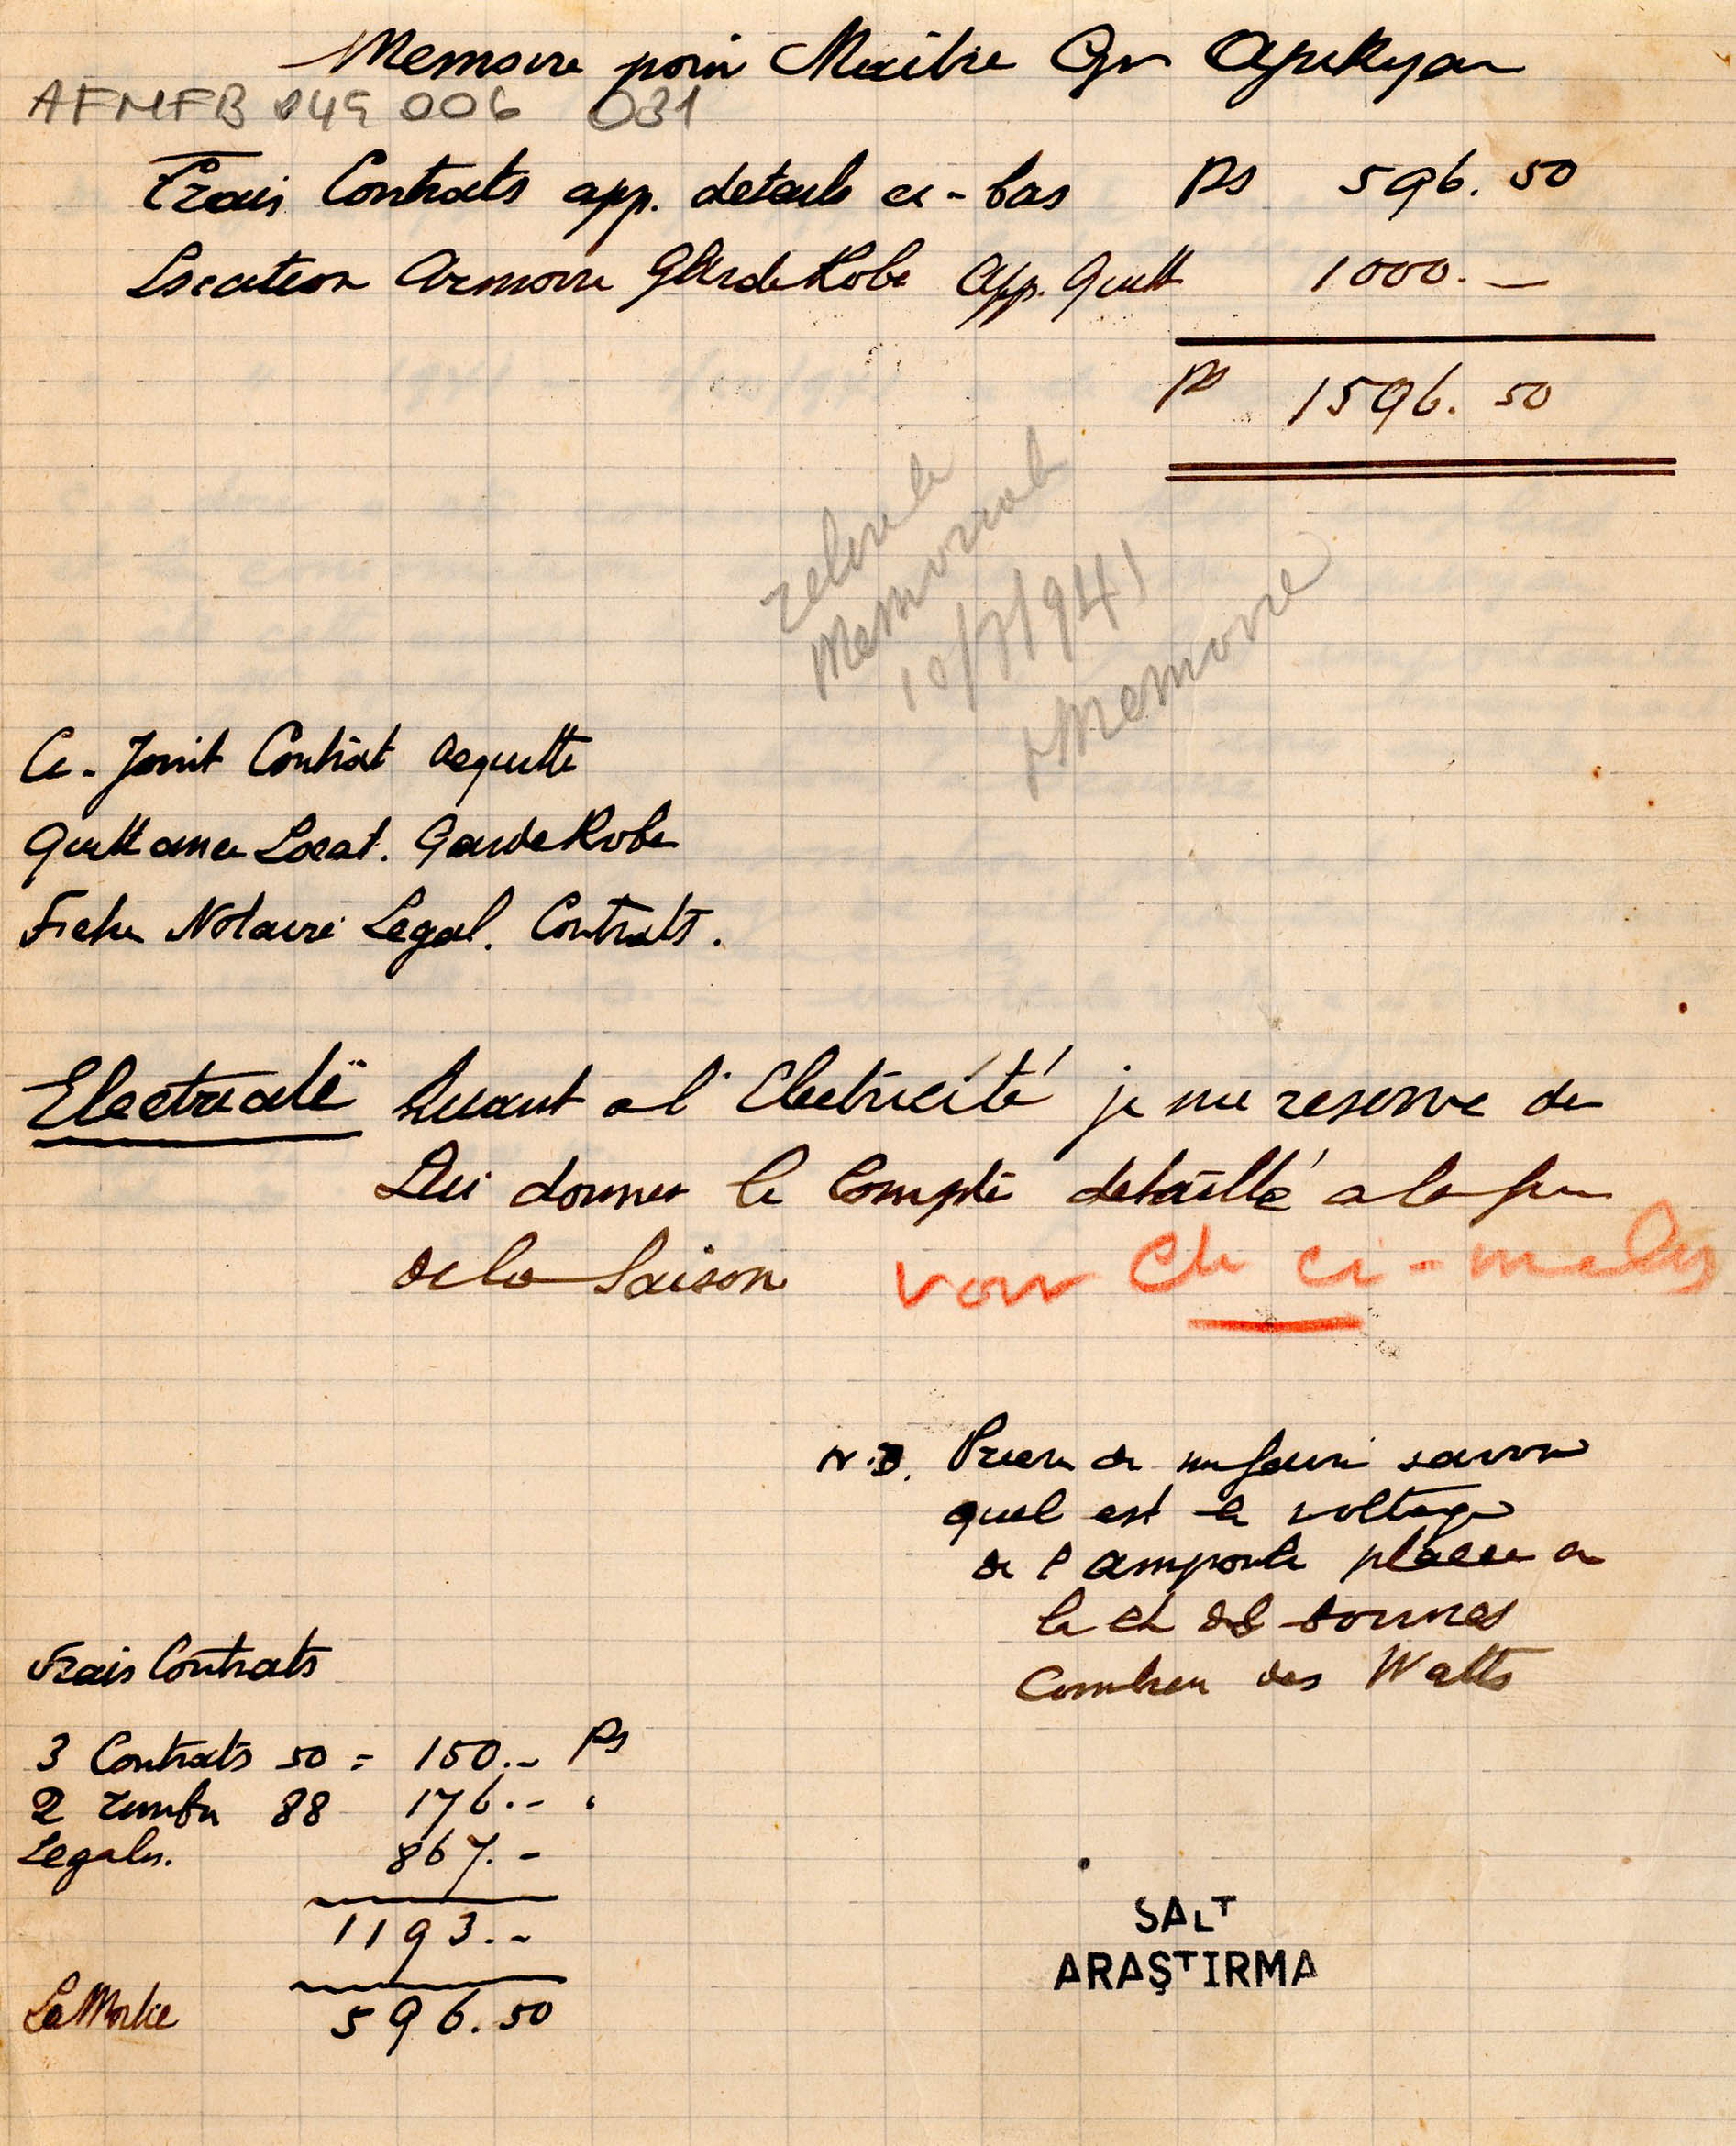 Memoire pour Maitre
AFMFB 049 006 031
Frais Contrats app. details ci-bas Ps 596.50
Location Armoire GardeRobe app. Quitt 1000.—
Ps 1596.50
Memoriale
10/7/1941
Memoire
Ci-Joint Contrat acquitté
Quittance Locat. GardeRobe
Fiche Notaire Legal. Contrats.
Electricité Quant a l'Electricité je me reserve de
Lui donner le Compte detaillé a la fin
de la Saison voir ci-
N.B. Priere de me faire savoir
quel est le voltage
de l'ampoule placee a
la ch de bonnes
Combien des Watts
Frais Contrats
3 Contrats 50 = 150.- Ps
2 88 176.- "
Legalis. 867.-
1193.-
La Moitie 596.50
SALT
ARAŞTIRMA